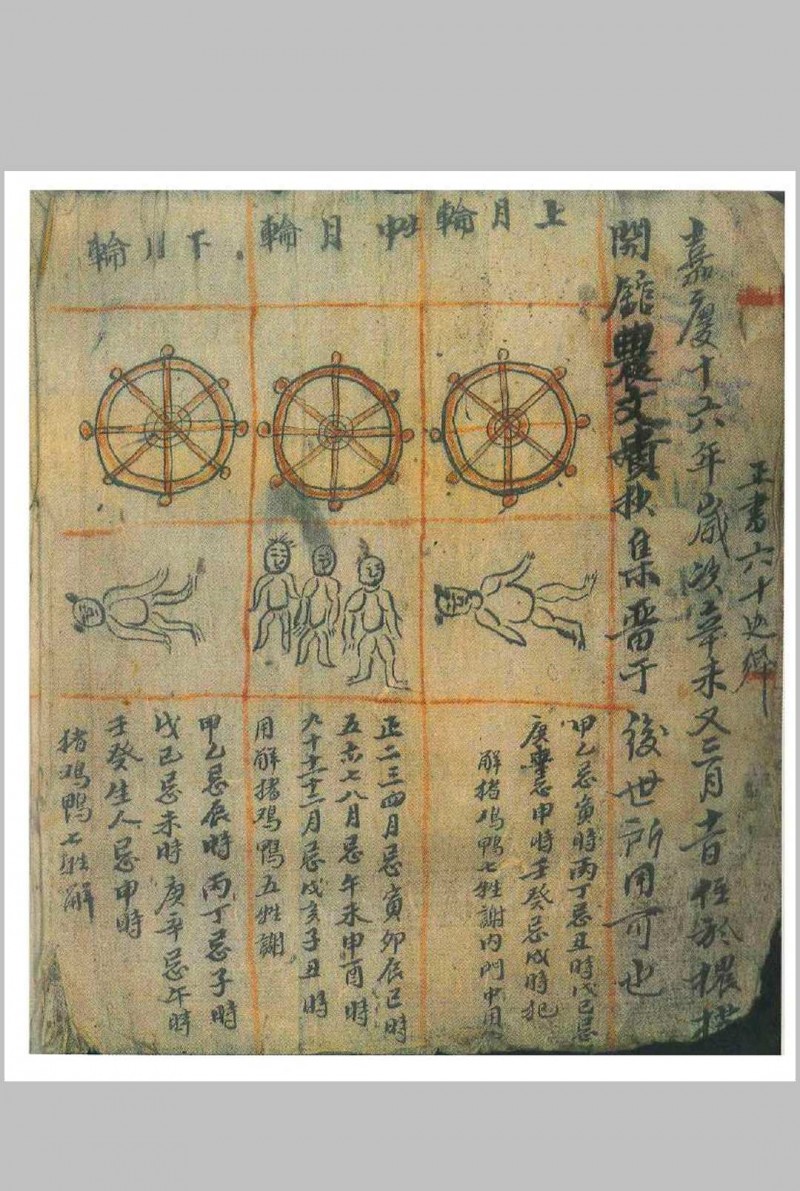 正書六十
嘉慶十六年歲次辛未又二月
開館農文 抄集晋于後世所用可也
上月輪
中月輪
下月輪
甲乙忌寅時丙丁忌丑時戊己忌
庚 忌申時壬癸忌戌時犯
解猪鸡鴨七牲謝内門中用
正二三四月忌寅卯辰巳時
五六七八月忌午未申酉時
九十十一十二月忌戌亥子丑時
用解猪鸡鴨五牲謝
甲乙忌辰時丙丁忌子時
戊己忌未時庚辛忌午時
壬癸生人忌申時
猪鸡鴨七牲解